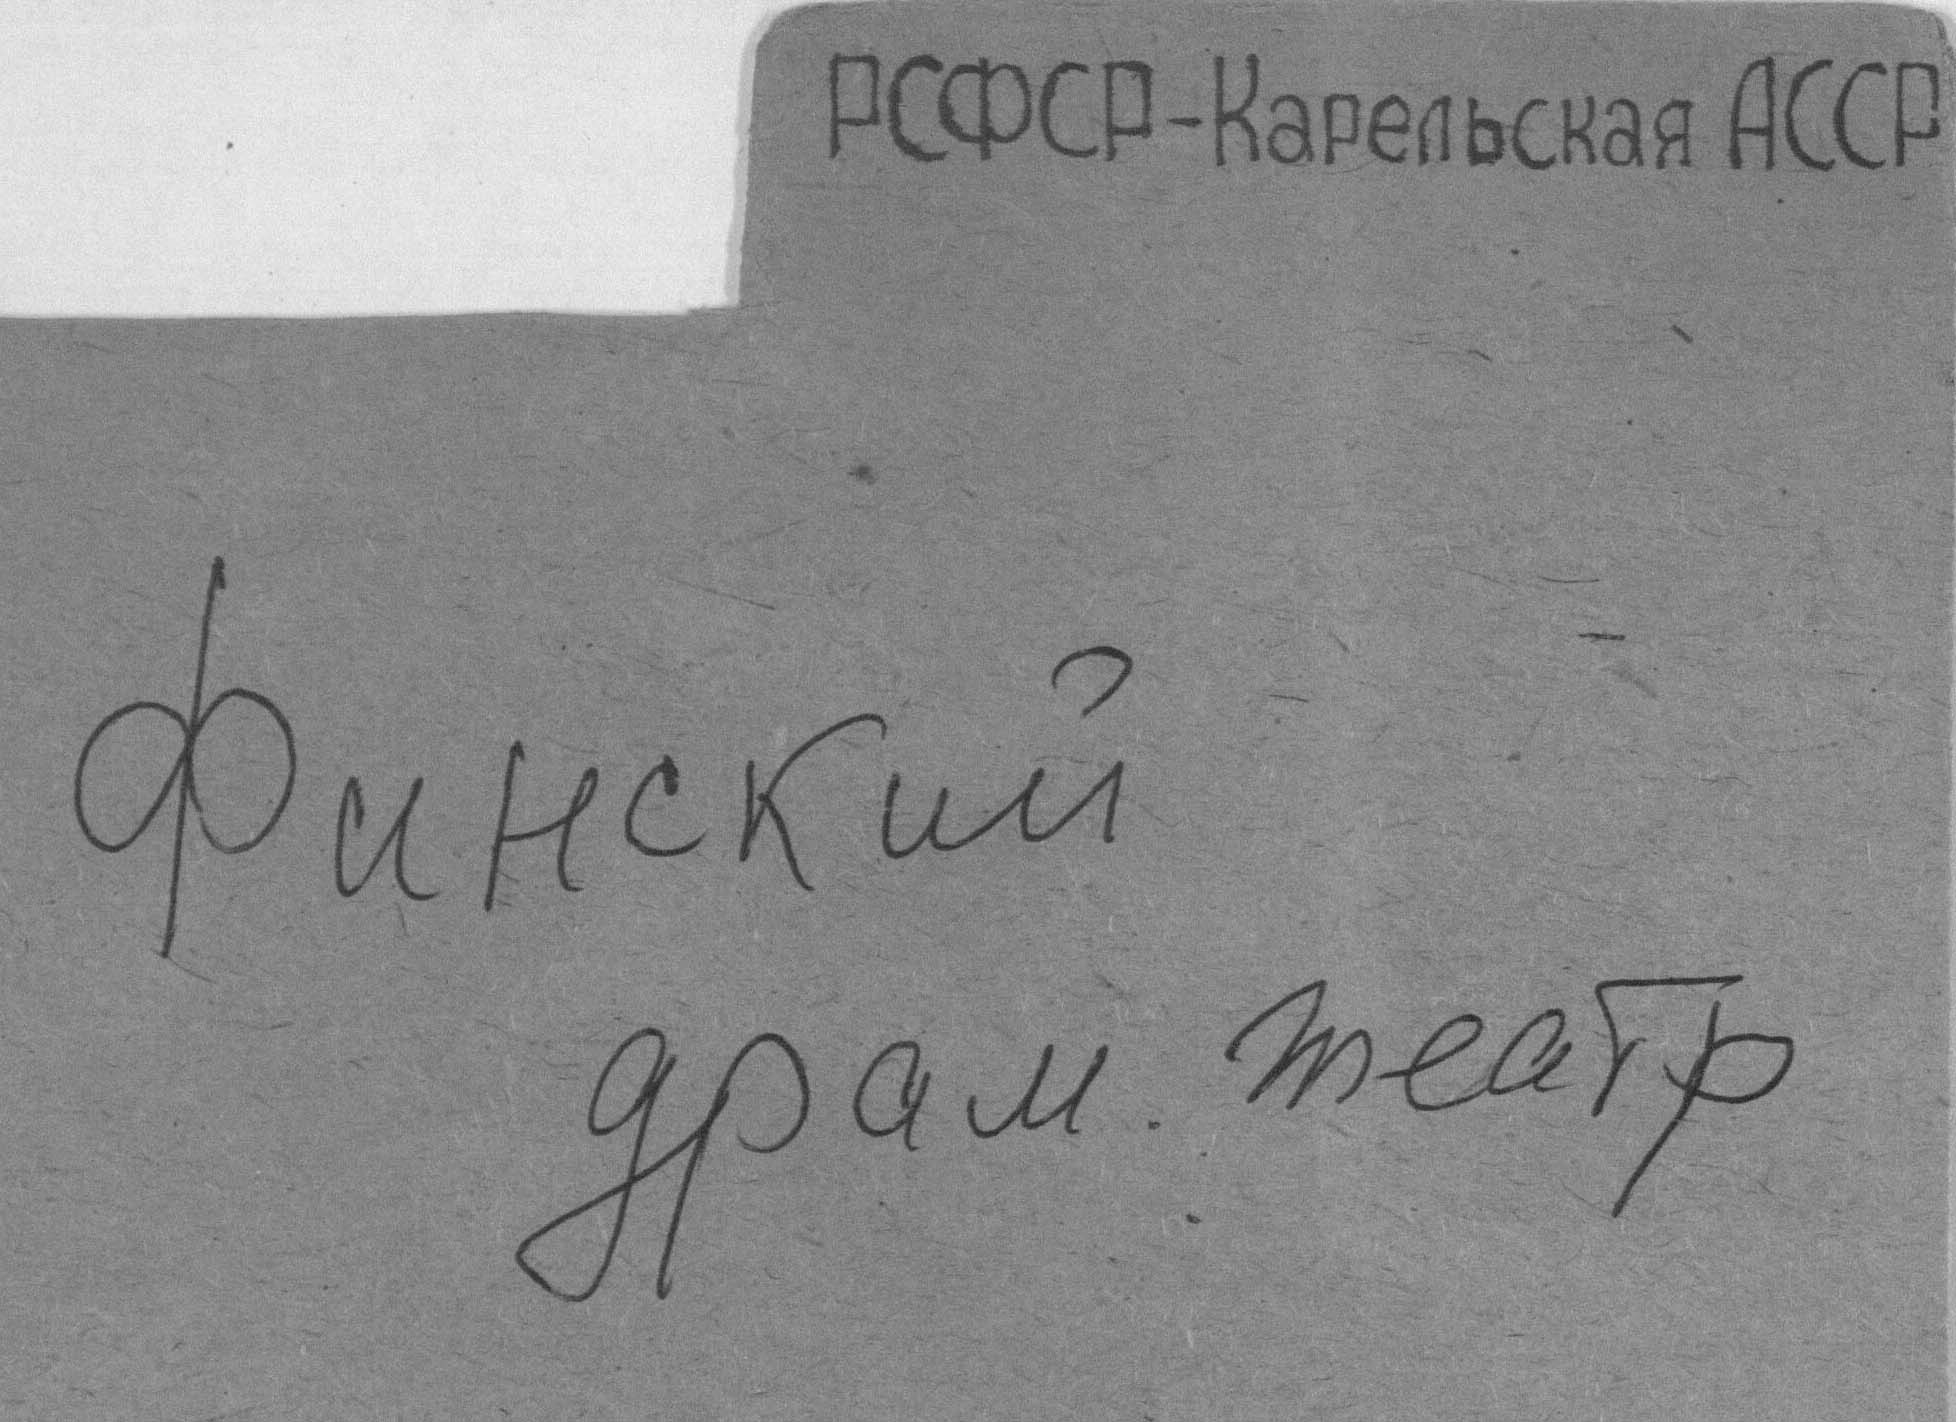 РСФСР-Карельская АССР
Финский
драм. театр